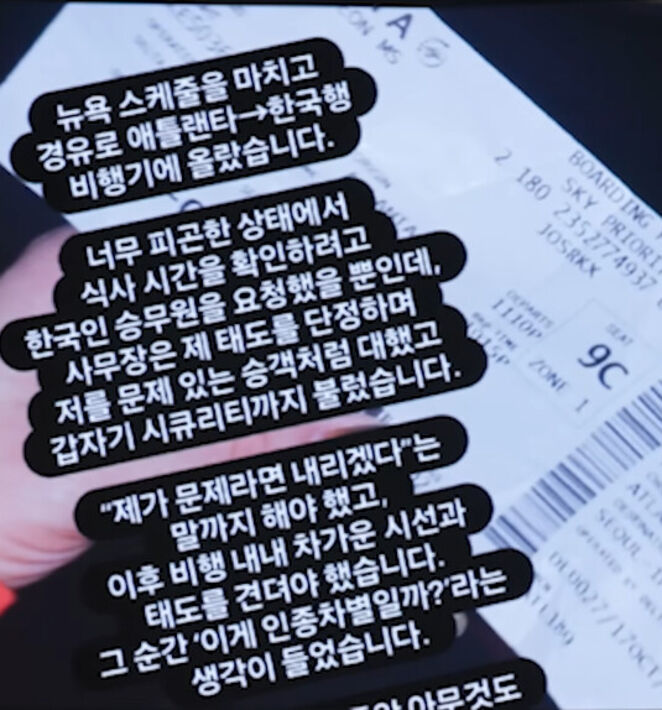 A
뉴욕 스케줄을 마치고
경유로 애틀랜타→한국행
비행기에 올랐습니다.
너무 피곤한 상태에서
식사 시간을 확인하려고
한국인 승무원을 요청했을 뿐인데,
사무장은 제 태도를 단정하며
저를 문제 있는 승객처럼 대했고
갑자기 시큐리티까지 불렀습니다.
“제가 문제라면 내리겠다”는
말까지 해야 했고,
이후 비행 내내 차가운 시선과
태도를 견뎌야 했습니다.
그 순간 ‘이게 인종차별일까?’라는
생각이 들었습니다.
아무것도
BOARDING
SKY PRIORI
2 180 2352774937
DEPARTS
1110P
ZONE 1
SEAT
9C
SEOUL-
DL0027/17OCT